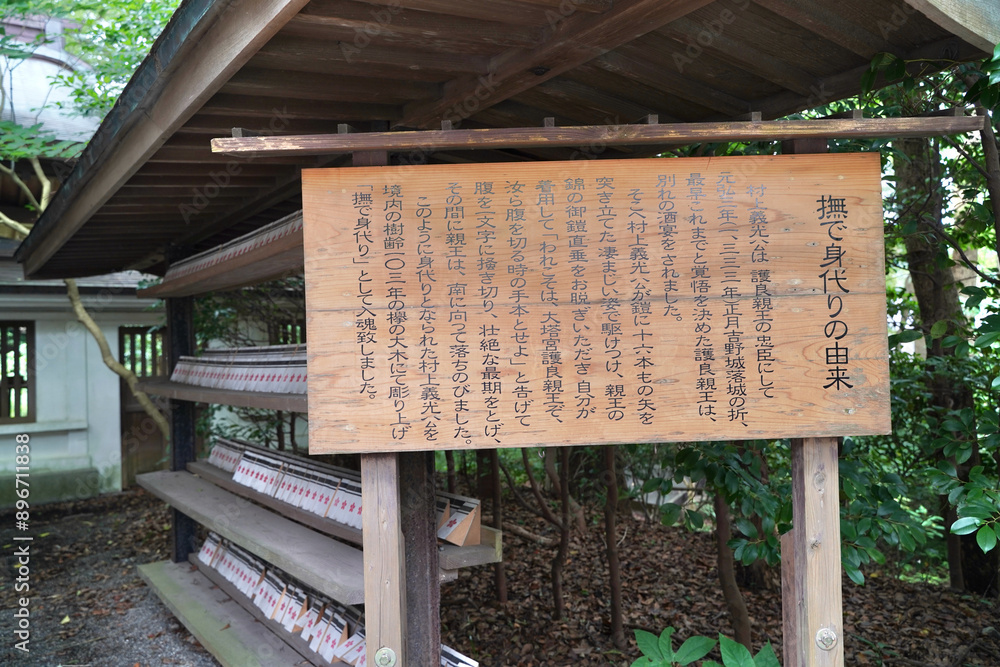 撫で身代りの由来
村上義光公は 護良親王の忠臣にして
元弘三年(一、三三三年)正月吉野城落城の折、
最早これまでと覚悟を決めた護良親王は、
別れの酒宴をされました。
そこへ村上義光公が鎧に十六本もの矢を
突き立てた凄まじい姿で駆けつけ、親王の
錦の御鎧直垂をお脱ぎいただき 自分が
着用して「われこそは、大塔宮護良親王で、
汝ら腹を切る時の手本とせよ」と告げて
腹を一文字に掻き切り、壮絶な最期をとげ、
その間に親王は、南に向って落ちのびました。
このように身代りとなられた村上義光公を
境内の樹齢一〇三年の欅の大木にて彫り上げ
「撫で身代り」として入魂致しました。
Adobe Stock | 896711838